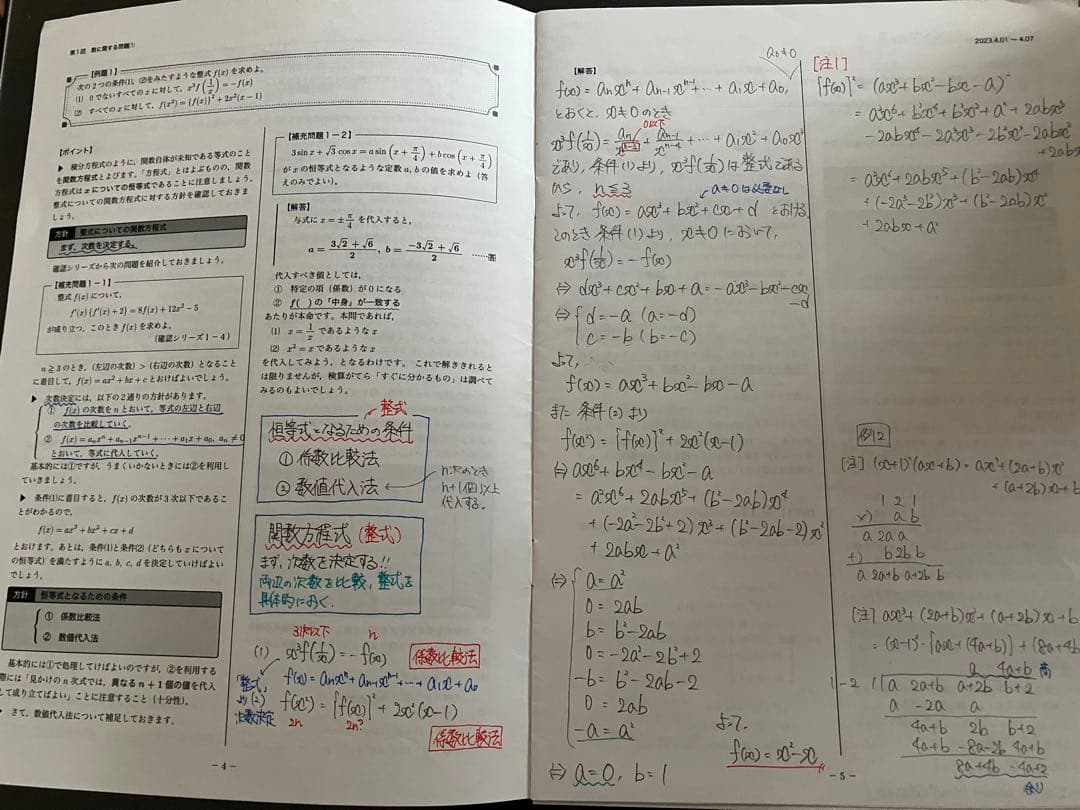 第1回 数に関する問題1
【例題1】
次の2つの条件(1), (2)をみたすような整式 f(x) を求めよ。
(1) 0でないすべての x に対して, x³f(1/x) = −f(x)
(2) すべての x に対して, f(x²) = {f(x)}² + 2x²(x−1)
【ポイント】
▶ 積分方程式のように, 関数自体が未知である等式のこと
を関数方程式とよびます。「方程式」とはよぶものの, 関数
方程式は x についての恒等式であることに注意しましょう。
整式についての関数方程式に対する方針を確認しておきま
しょう。
方針 整式についての関数方程式
まず, 次数を決定する。
確認シリーズから次の問題を紹介しておきましょう。
【補充問題1−1】
整式 f(x) について,
f'(x){f'(x)+2} = 8f(x)+12x²−5
が成り立つ。このとき f(x) を求めよ。
(確認シリーズ1−4)
n≧3のとき, (左辺の次数) > (右辺の次数) となること
に着目して, f(x) = ax²+bx+c とおけばよいでしょう。
▶ 次数決定には, 以下の2通りの方針があります。
① f(x) の次数を n とおいて, 等式の左辺と右辺
の次数を比較していく。
② f(x) = aₙxⁿ+aₙ₋₁xⁿ⁻¹+⋯+a₁x+a₀, aₙ≠0
とおいて, 等式に代入していく。
基本的には①ですが, うまくいかないときには②を利用し
ていきましょう。
▶ 条件(1)に着目すると, f(x) の次数が3次以下であるこ
とがわかるので,
f(x) = ax³+bx²+cx+d
とおけます。あとは, 条件(1)と条件(2)(どちらも x につい
ての恒等式)を満たすように a, b, c, d を決定していけばよい
でしょう。
方針 恒等式となるための条件
① 係数比較法
② 数値代入法
基本的には①で処理してけばよいのですが, ②を利用する
際には「見かけの n 次式では, 異なる n+1 個の値を代入
して成り立てばよい」ことに注意すること (十分性)。
▶ さて, 数値代入法について補足しておきます。
【補充問題1−2】
3sin x+√3 cos x = a sin(x+π/4)+b cos(x+π/4)
が x の恒等式となるような定数 a, b の値を求めよ (答
えのみでよい)。
【解答】
与式に x=±π/4 を代入すると,
a = (3√2+√6)/2, b = (−3√2+√6)/2 ……答
代入すべき値としては,
① 特定の項(係数)が0になる
② f( ) の「中身」が一致する
あたりが本命です。本問であれば,
(1) x=1/x であるような x
(2) x²=x であるような x
を代入してみよう, となるわけです。これで解ききれると
は限りませんが, 検算がてら「すぐに分かるもの」は調べて
みるのもよいでしょう。
整式
恒等式となるための条件
① 係数比較法
② 数値代入法
n次のとき
n+1個以上
代入する。
関数方程式 (整式)
まず、次数を決定する!!
両辺の次数を比較, 整式を
具体的におく.
3次以下 n
(1) x³f(1/x) = −f(x) 係数比較法
「整式」 f(x) = aₙxⁿ+aₙ₋₁xⁿ⁻¹+⋯+a₁x+a₀
より (2) f(x²) = [f(x)]²+2x²(x−1)
次数決定 2n 2n?
係数比較法
− 4 −
2023.4.01 〜 4.07
【解答】
a₀≠0
f(x) = aₙxⁿ+aₙ₋₁xⁿ⁻¹+⋯+a₁x+a₀,
とおくと, x≠0のとき
0以下
x³f(1/x) = aₙ/xⁿ⁻³ + aₙ₋₁/xⁿ⁻⁴ + ⋯ + a₁x²+a₀x³
であり, 条件(1)より, x³f(1/x) は整式である
から, n≦3
a≠0は必要なし
よって, f(x) = ax³+bx²+cx+d とおける
このとき条件(1)より, x≠0において,
x³f(1/x) = −f(x)
⇔ dx³+cx²+bx+a = −ax³−bx²−cx
−d
⇔ { d=−a (a=−d)
c=−b (b=−c)
よって,
f(x) = ax³+bx²−bx−a
また 条件(2)より
f(x²) = [f(x)]²+2x²(x−1)
⇔ ax⁶+bx⁴−bx²−a
= a²x⁶+2abx⁵+(b²−2ab)x⁴
+(−2a²−2b²+2)x³+(b²−2ab−2)x²
+2abx+a²
⇔ { a=a²
0=2ab
b=b²−2ab
0=−2a²−2b²+2
−b=b²−2ab−2
0=2ab
−a=a²
⇔ a=0, b=1
よって.
f(x)=x²−x
[注1]
[f(x)]² = (ax³+bx²−bx−a)²
= a²x⁶+b²x⁴+b²x²+a²+2abx⁵
−2abx⁴−2a²x³−2b²x³−2abx²
+2abx
= a²x⁶+2abx⁵+(b²−2ab)x⁴
+(−2a²−2b²)x³+(b²−2ab)x²
+2abx+a²
例2
[注] (x+1)²(ax+b) = ax³+(2a+b)x²
+(a+2b)x+b
1 2 1
×) a b
a 2a a
+) b 2b b
a 2a+b a+2b b
[注] ax³+(2a+b)x²+(a+2b)x+b
= (x−1)²・[ax+(4a+b)]+(8a+4b
a 4a+b 商
1 −2 1 ) a 2a+b a+2b b+2
a −2a a
4a+b 2b b+2
4a+b −8a−2b 4a+b
8a+4b −4a+2
余り
− 5 −